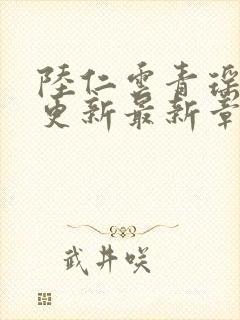 陸仁雲青瑶
更新最新章
武井咲